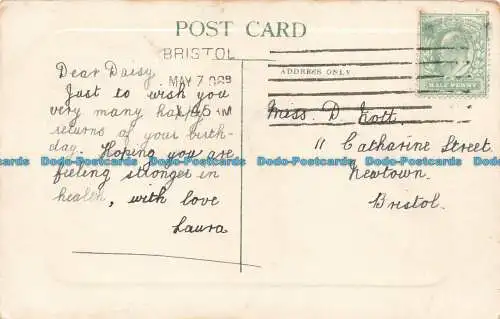 POST CARD
BRISTOL
MAY 7
ADDRESS ONLY
HALF PENNY
Dear Daisy
Just to wish you
very many happy
returns of your birth-
day. Hoping you are
feeling stronger in
health, with love
Laura
Miss D.
11 Catharine Street
Newtown.
Bristol.
Dodo-Postcards Dodo-Postcards Dodo-Postcards Dodo-Postcards Dodo-Postcards